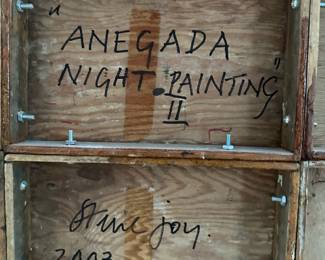 "ANEGADA
NIGHT.PAINTING"
II
Steve joy.
2003